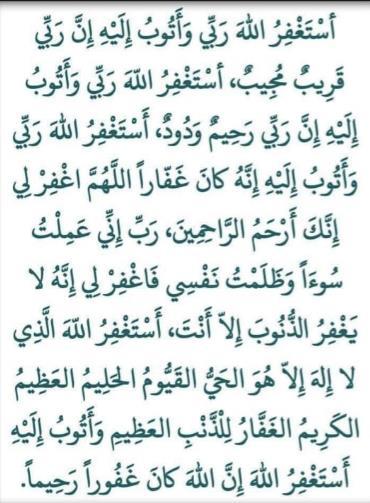 أسْتَغْفِرُ اللهَ رَبِّي وَأَتُوبُ إِلَيْهِ إِنَّ رَبِّي
قَرِيبٌ مُجِيبٌ، أسْتَغْفِرُ اللّهَ رَبِّي وَأَتُوبُ
إِلَيْهِ إِنَّ رَبِّي رَحِيمٌ وَدُودٌ، أَسْتَغْفِرُ اللهَ رَبِّي
وَأَتُوبُ إِلَيْهِ إِنَّهُ كانَ غَفّاراً اللَّهُمَّ اغْفِرْ لِي
إِنَّكَ أَرْحَمُ الرَّاحِمِينَ، رَبِّ إِنِّي عَمِلْتُ
سُوءَاً وَظَلَمْتُ نَفْسِي فَاغْفِرْ لِي إِنَّهُ لا
يَغْفِرُ الذُّنُوبَ إِلاّ أَنْتَ، أَسْتَغْفِرُ اللهَ الَّذِي
لا إِلهَ إِلاّ هُوَ الحَيُّ القَيُّومُ الحَلِيمُ العَظِيمُ
الكَرِيمُ الغَفَّارُ لِلذَّنْبِ العَظِيمِ وَأَتُوبُ إِلَيْهِ
أَسْتَغْفِرُ اللهَ إِنَّ اللهَ كانَ غَفُوراً رَحِيماً.